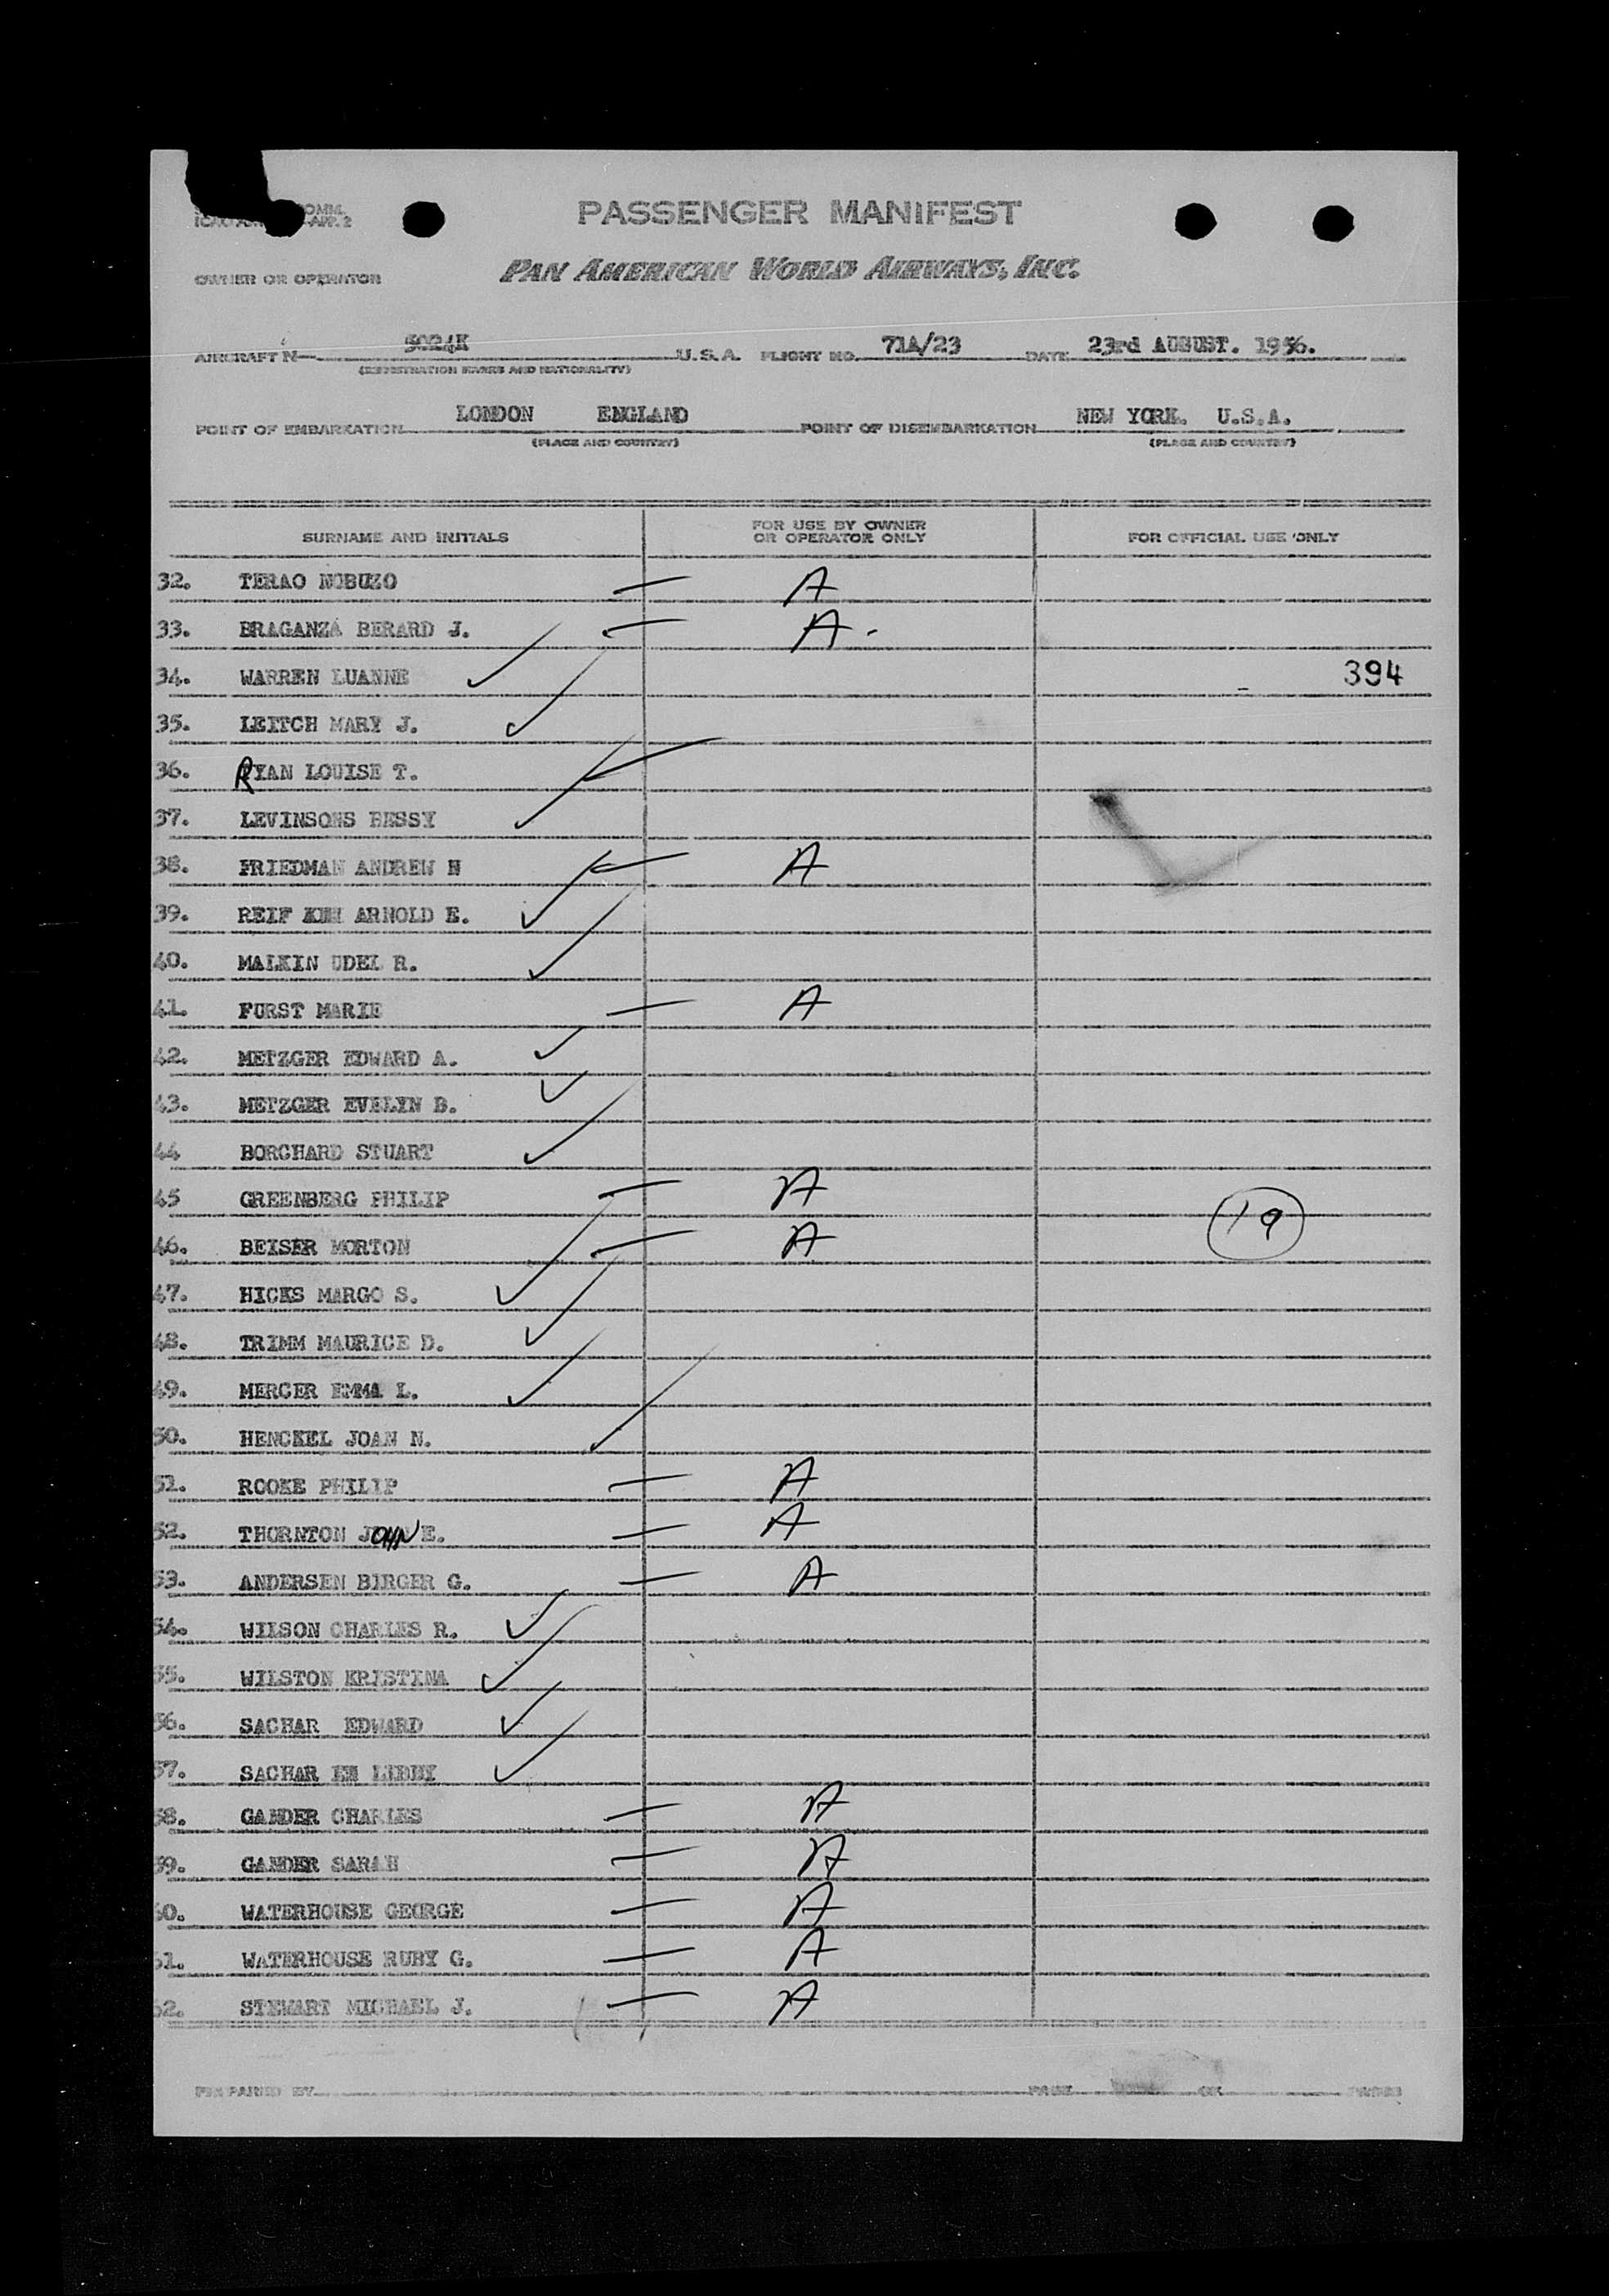 OMM.
APP. 2
PASSENGER MANIFEST
OWNER OR OPERATOR PAN AMERICAN WORLD AIRWAYS, INC.
AIRCRAFT N— 5024K U.S.A. FLIGHT NO. 71A/23 DATE 23rd AUGUST. 1956.
(REGISTRATION MARKS AND NATIONALITY)
POINT OF EMBARKATION LONDON ENGLAND POINT OF DISEMBARKATION NEW YORK. U.S.A.
(PLACE AND COUNTRY) (PLACE AND COUNTRY)
SURNAME AND INITIALS FOR USE BY OWNER OR OPERATOR ONLY FOR OFFICIAL USE ONLY
32. TERAO NOBUZO — A
33. BRAGANZA BERARD J. — A -
34. WARREN LUANNE ✓ 394
35. LEITCH MARY J. ✓
36. RYAN LOUISE T.
37. LEVINSONS BESSY ✓
38. FRIEDMAN ANDREW H — A
39. REIF ARNOLD E. ✓
40. MALKIN UDEL R. ✓
41. FURST MARIE — A
42. METZGER EDWARD A. ✓
43. METZGER EVELYN B. ✓
44 BORCHARD STUART ✓
45 GREENBERG PHILIP — A
46. BEISER MORTON — A 19
47. HICKS MARGO S. ✓
48. TRIMM MAURICE D. ✓
49. MERCER EMMA L. ✓
50. HENCKEL JOAN N. ✓
51. ROOKE PHILIP — A
52. THORNTON JOHN E. — A
53. ANDERSEN BIRGER G. — A
54. WILSON CHARLES R. ✓
55. WILSTON KRISTINA ✓
56. SACHAR EDWARD ✓
57. SACHAR LIBBY ✓
58. GANDER CHARLES — A
59. GANDER SARAH — A
60. WATERHOUSE GEORGE — A
61. WATERHOUSE RUBY G. — A
62. STEWART MICHAEL J. — A
PREPARED BY PAGE OF PAGES